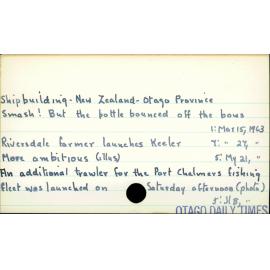 Shipbuilding - New Zealand - Otago Province
Smash! But the bottle bounced off the bows
1: Mar 15, 1963
Riversdale farmer launches Keeler
7: " 27, "
More ambitious (illus) 5: My 21, "
An additional trawler for the Port Chalmers fishing
fleet was launched on Saturday afternoon (photo)
OTAGO DAILY TIMES